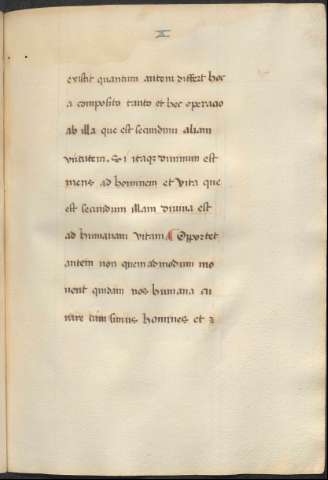 X
existit quantum autem differt hoc
a composito tanto et hec operacio
ab illa que est secundum aliam
virtutem. Si itaque divinum est
mens ad hominem et vita que
est secundum illam divina est
ad humanam vitam ¶ Opportet
autem non quemadmodum mo
nent quidam nos humana cu
rare cum simus homines et